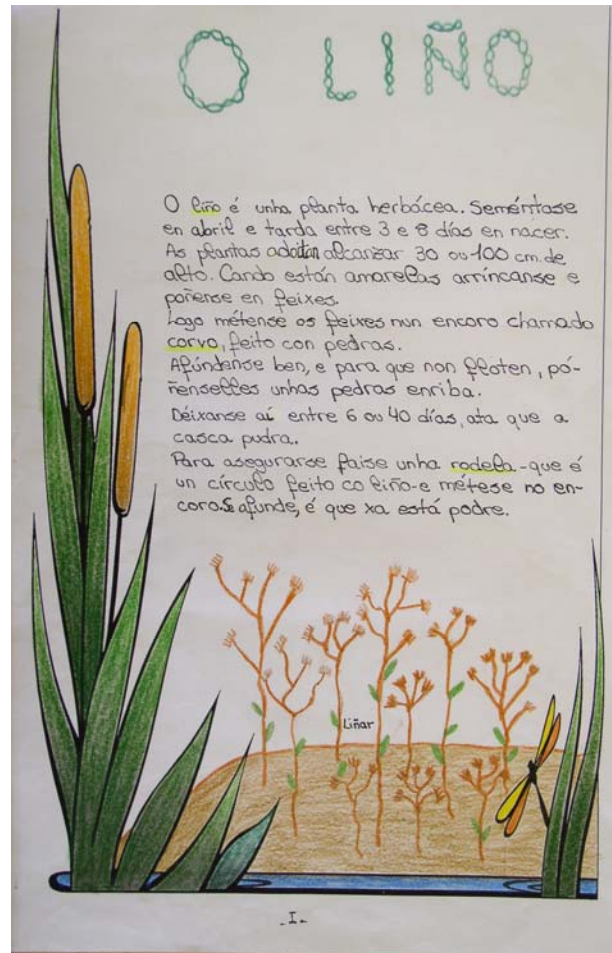 O LIÑO
O liño é unha planta herbácea. Seméntase
en abril e tarda entre 3 e 8 días en nacer.
As plantas adoitan alcanzar 30 ou 100 cm. de
alto. Cando están amarelas arríncanse e
poñense en feixes.
Logo métense os feixes nun encoro chamado
corvo, feito con pedras.
Afúndense ben, e para que non floten, pó-
ñenselles unhas pedras enriba.
Déixanse aí entre 6 ou 40 días, ata que a
casca pudra.
Para asegurarse faise unha rodela-que é
un círculo feito co liño-e métese no en-
coro.Se afunde, é que xa está podre.
Liñar
-I-